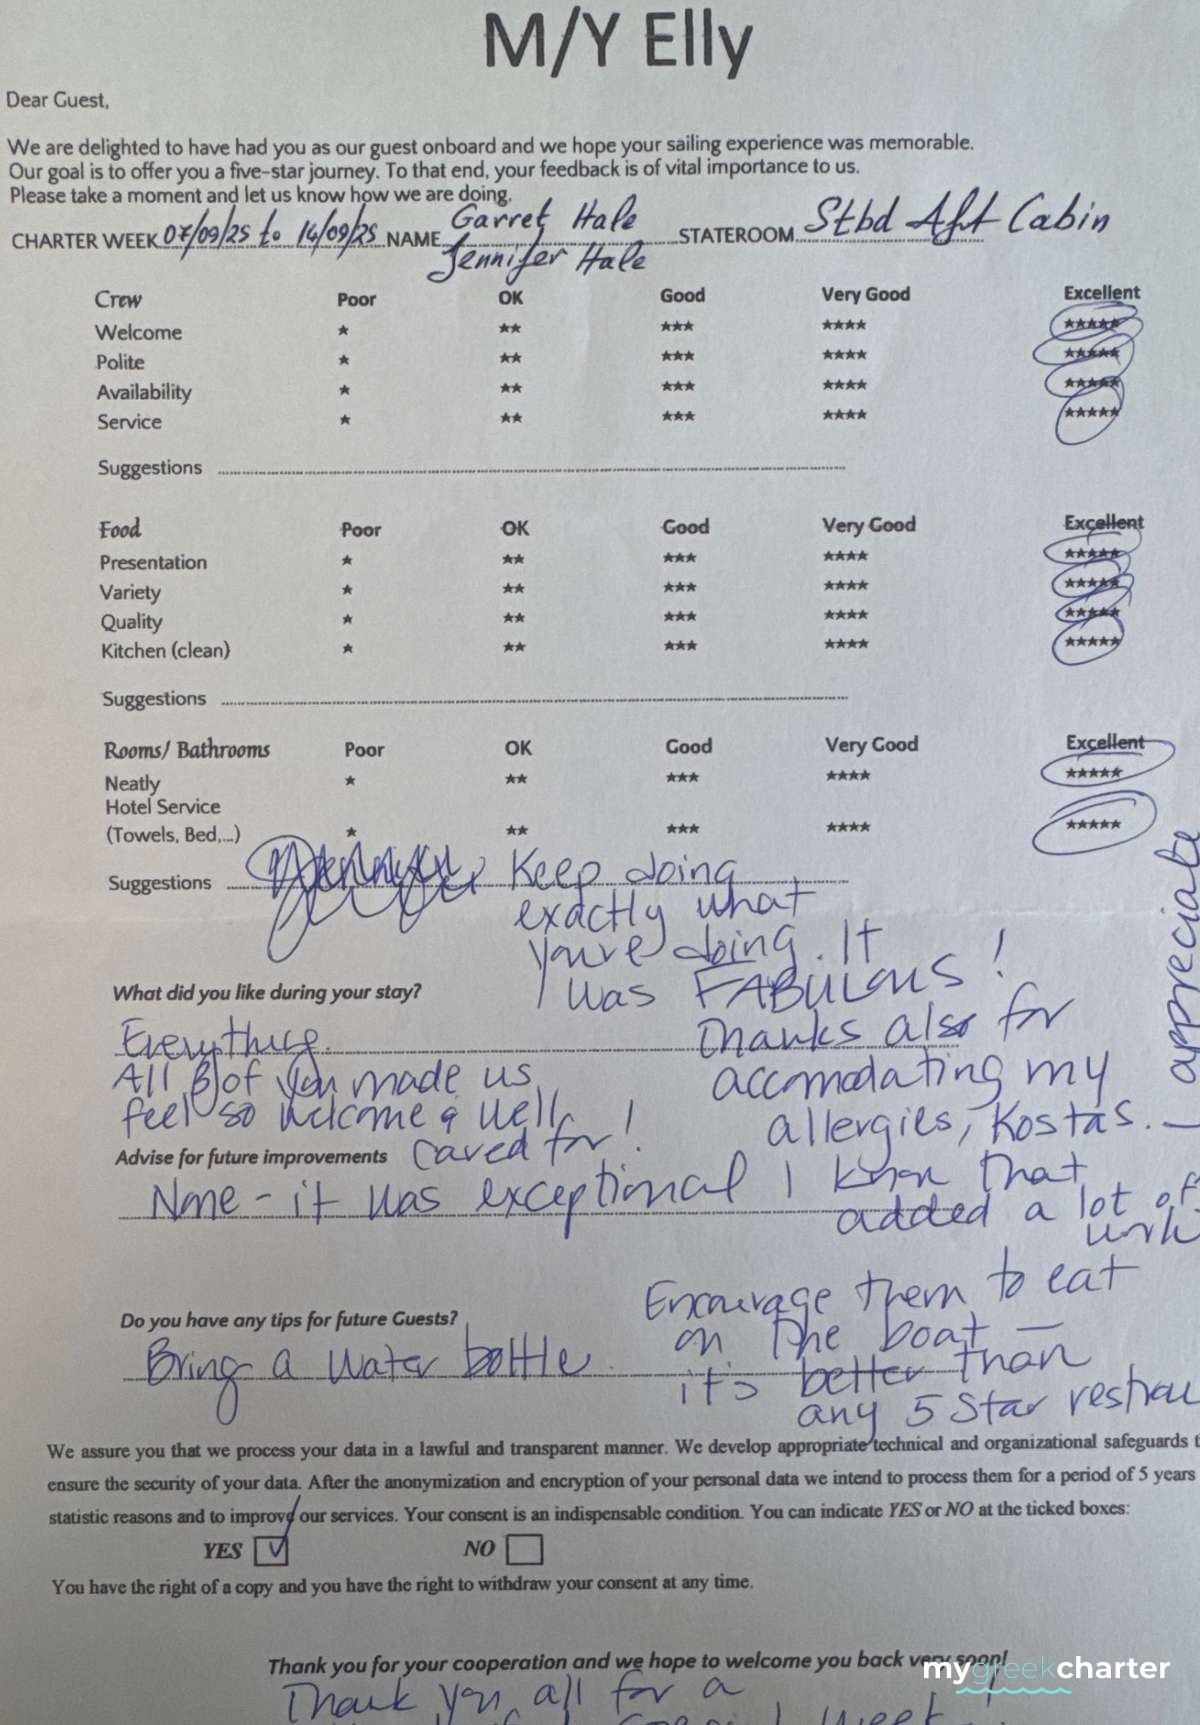 M/Y Elly
Dear Guest,
We are delighted to have had you as our guest onboard and we hope your sailing experience was memorable.
Our goal is to offer you a five-star journey. To that end, your feedback is of vital importance to us.
Please take a moment and let us know how we are doing.
CHARTER WEEK 07/09/25 to 14/09/25 NAME Garret Hale STATEROOM Stbd Aft Cabin
Jennifer Hale
Crew Poor OK Good Very Good Excellent
Welcome ★ ★★ ★★★ ★★★★ ★★★★★
Polite ★ ★★ ★★★ ★★★★ ★★★★★
Availability ★ ★★ ★★★ ★★★★ ★★★★★
Service ★ ★★ ★★★ ★★★★ ★★★★★
Suggestions
Food Poor OK Good Very Good Excellent
Presentation ★ ★★ ★★★ ★★★★ ★★★★★
Variety ★ ★★ ★★★ ★★★★ ★★★★★
Quality ★ ★★ ★★★ ★★★★ ★★★★★
Kitchen (clean) ★ ★★ ★★★ ★★★★ ★★★★★
Suggestions
Rooms/ Bathrooms Poor OK Good Very Good Excellent
Neatly ★ ★★ ★★★ ★★★★ ★★★★★
Hotel Service
(Towels, Bed,...) ★ ★★ ★★★ ★★★★ ★★★★★
Suggestions Keep doing
exactly what
you're doing. It
was FABULOUS!
What did you like during your stay?
Everything.
All 8 of you made us
feel so welcome & well
cared for!
Thanks also for
accomodating my
allergies, Kostas. —
I know that
added a lot of
work
appreciate
Advise for future improvements
None - it was exceptional
Do you have any tips for future Guests?
Bring a water bottle.
Encourage them to eat
on the boat —
it's better than
any 5 Star restrau
We assure you that we process your data in a lawful and transparent manner. We develop appropriate technical and organizational safeguards t
ensure the security of your data. After the anonymization and encryption of your personal data we intend to process them for a period of 5 years
statistic reasons and to improve our services. Your consent is an indispensable condition. You can indicate YES or NO at the ticked boxes:
YES NO
You have the right of a copy and you have the right to withdraw your consent at any time.
Thank you for your cooperation and we hope to welcome you back very soon!
Thank you all for a
week!
mygreekcharter